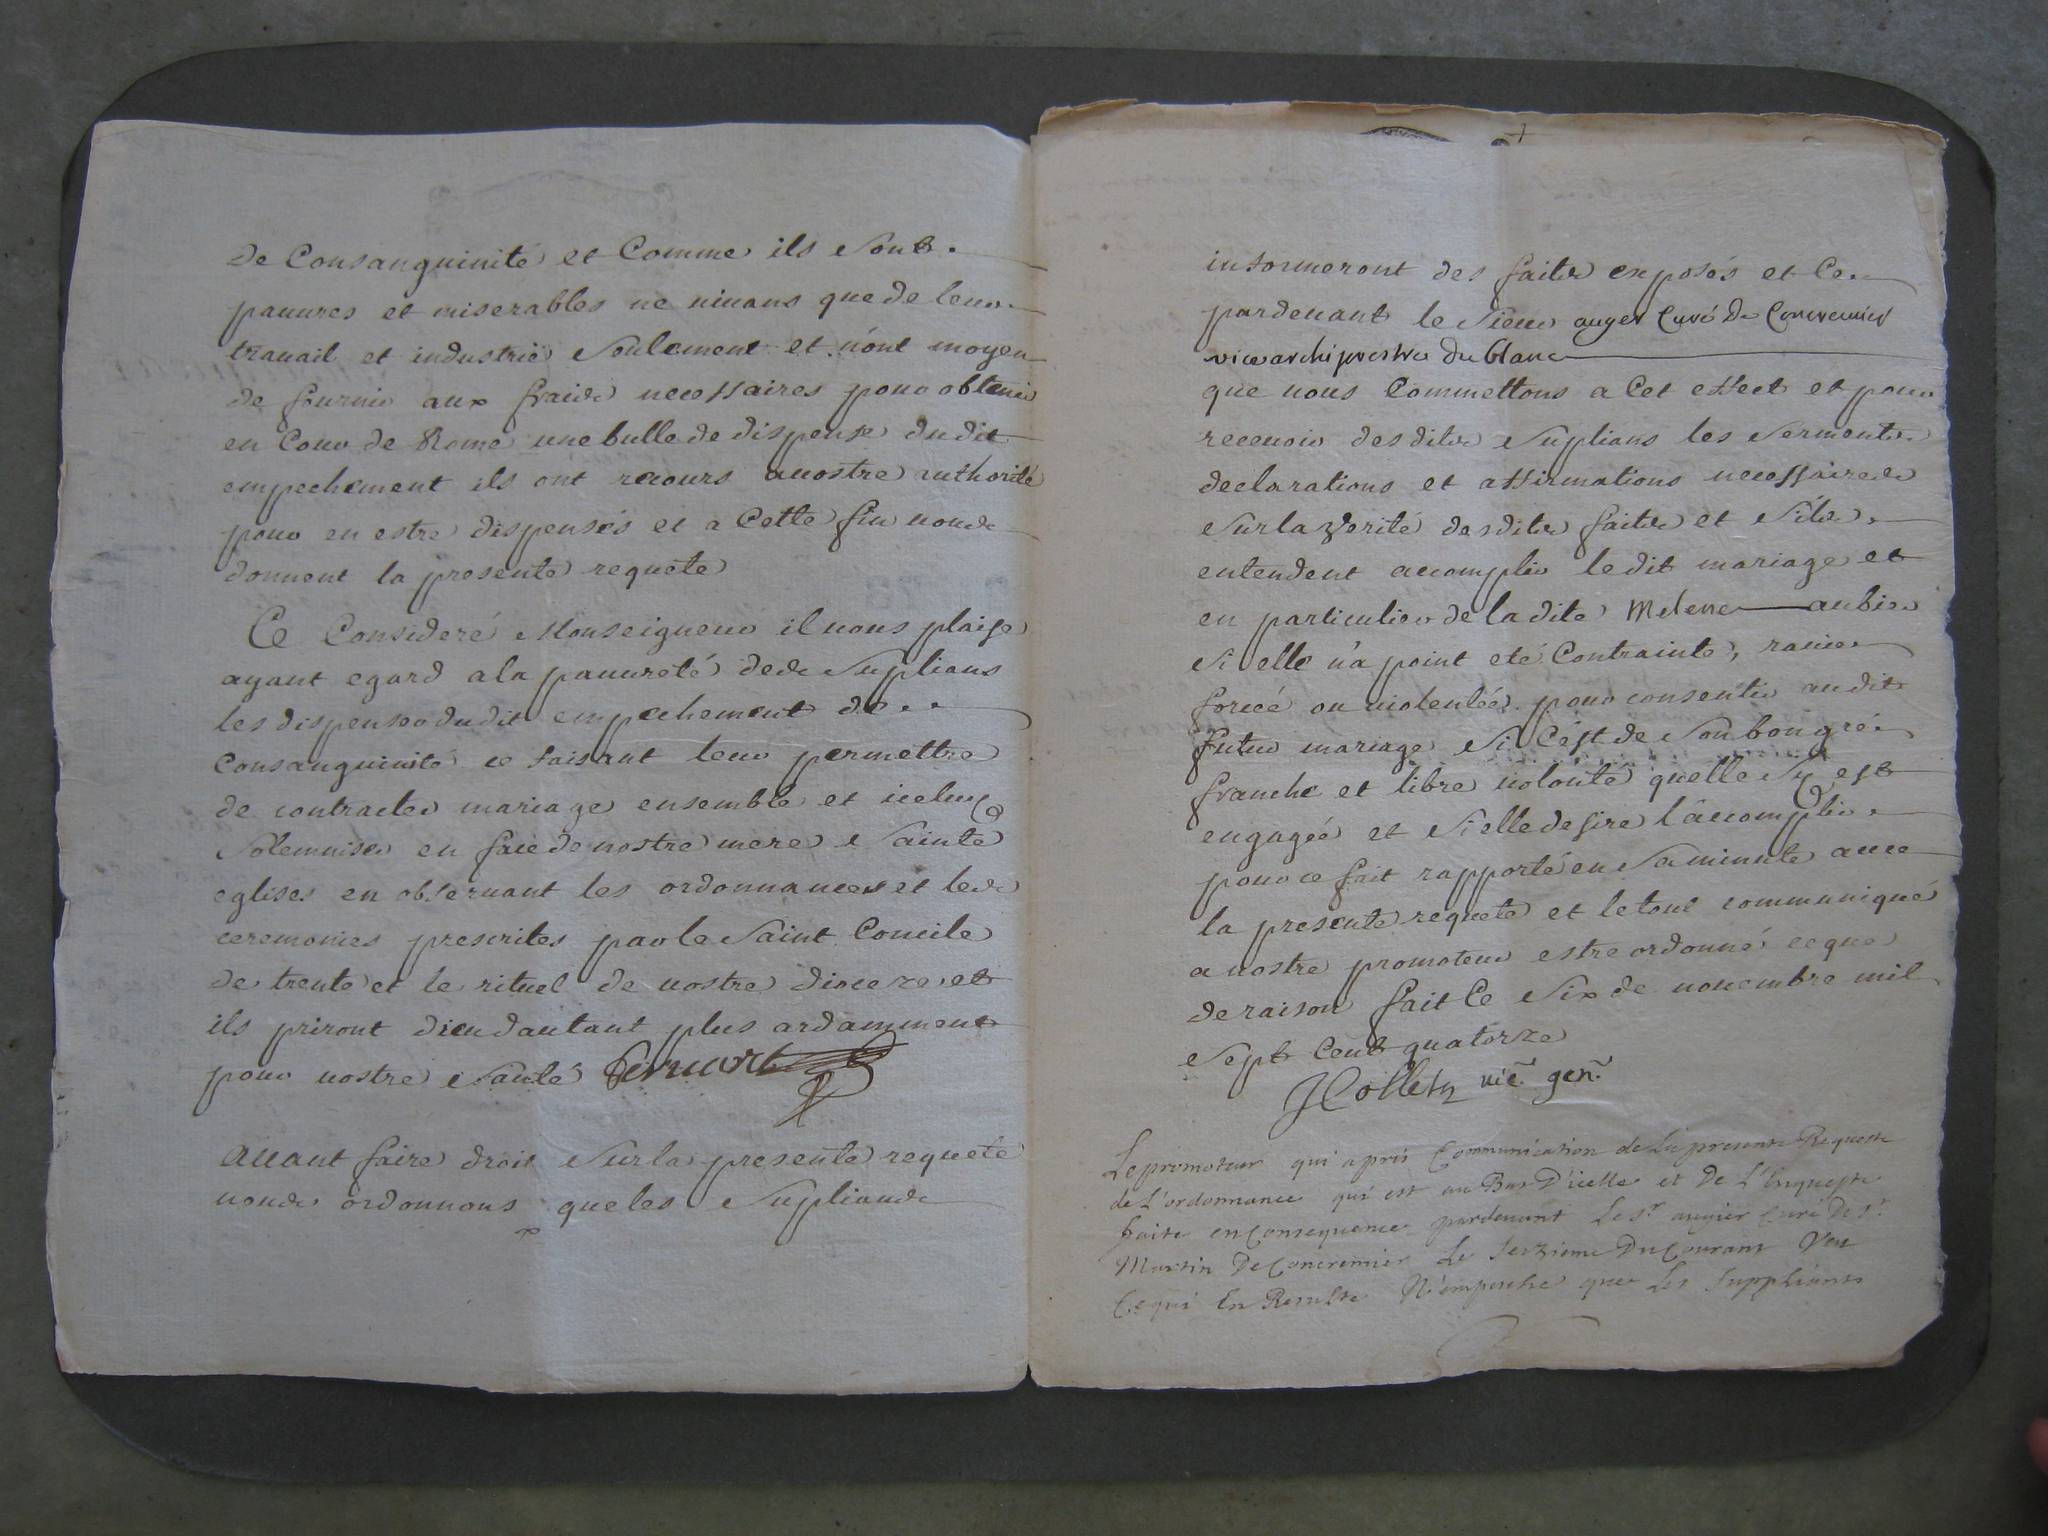 de Consanguinité et Comme ils sont
pauures et miserables ne viuans que de leur
trauail et industrie seulement et n'ont moyen
de fournir aux frais necessaires pour obtenir
en Cour de Rome une bulle de dispense du dit
empechement ils ont recours a uostre authorité
pour en estre dispensés et a Cette fin uous
donnent la presente requete
Ce Consideré Monseigneur il uous plaise
ayant egard a la pauureté des suplians
les dispenser du dit empechement de
Consanguinité ce faisant leur permettre
de contracter mariage ensemble et iceluy
solemniser en face de nostre mere sainte
eglises en obseruant les ordonnances et les
ceremonies prescrites par le saint Concile
de trente et le rituel de uostre dioceze et
ils priront dieu dautant plus ardamment
pour uostre santé
Auant faire droit sur la presente requete
nous ordonnons que les supliands
informeront des faits exposés et Ce
pardeuant le sieur auger Curé De Concremier
vice archiprestre du blanc
que nous Commettons a Cet effect et pour
receuoir desdits suplians les serments
declarations et affirmations necessaires
sur la verité desdits faits et s'ils
entendent accomplir le dit mariage et
en particulier de la dite Melene aubier
si elle n'a point eté Contrainte, rauie
forcée ou uiolentée pour consentir au dit
futur mariage si C'est de son bon gré
franche et libre uolonté quelle s'y est
engagée et si elle desire l'accomplir
pour ce fait rapporté en sa minute auec
la presente requete et le tout communiqué
a nostre promoteur estre ordonné ce que
de raison fait Ce six de nouembre mil
sept Cent quatorze
JCollein vic. gen.
Le promoteur qui apris Communication de La presente Requeste
de L'ordonnance qui est au Bas D'icelle et De L'Enqueste
faite en Consequence pardeuant Le Sr. augier Curé De St.
Martin De Concremier Le seizieme Du Courant Veu
Ce qui En Resulte N'empesche que Les Supplians